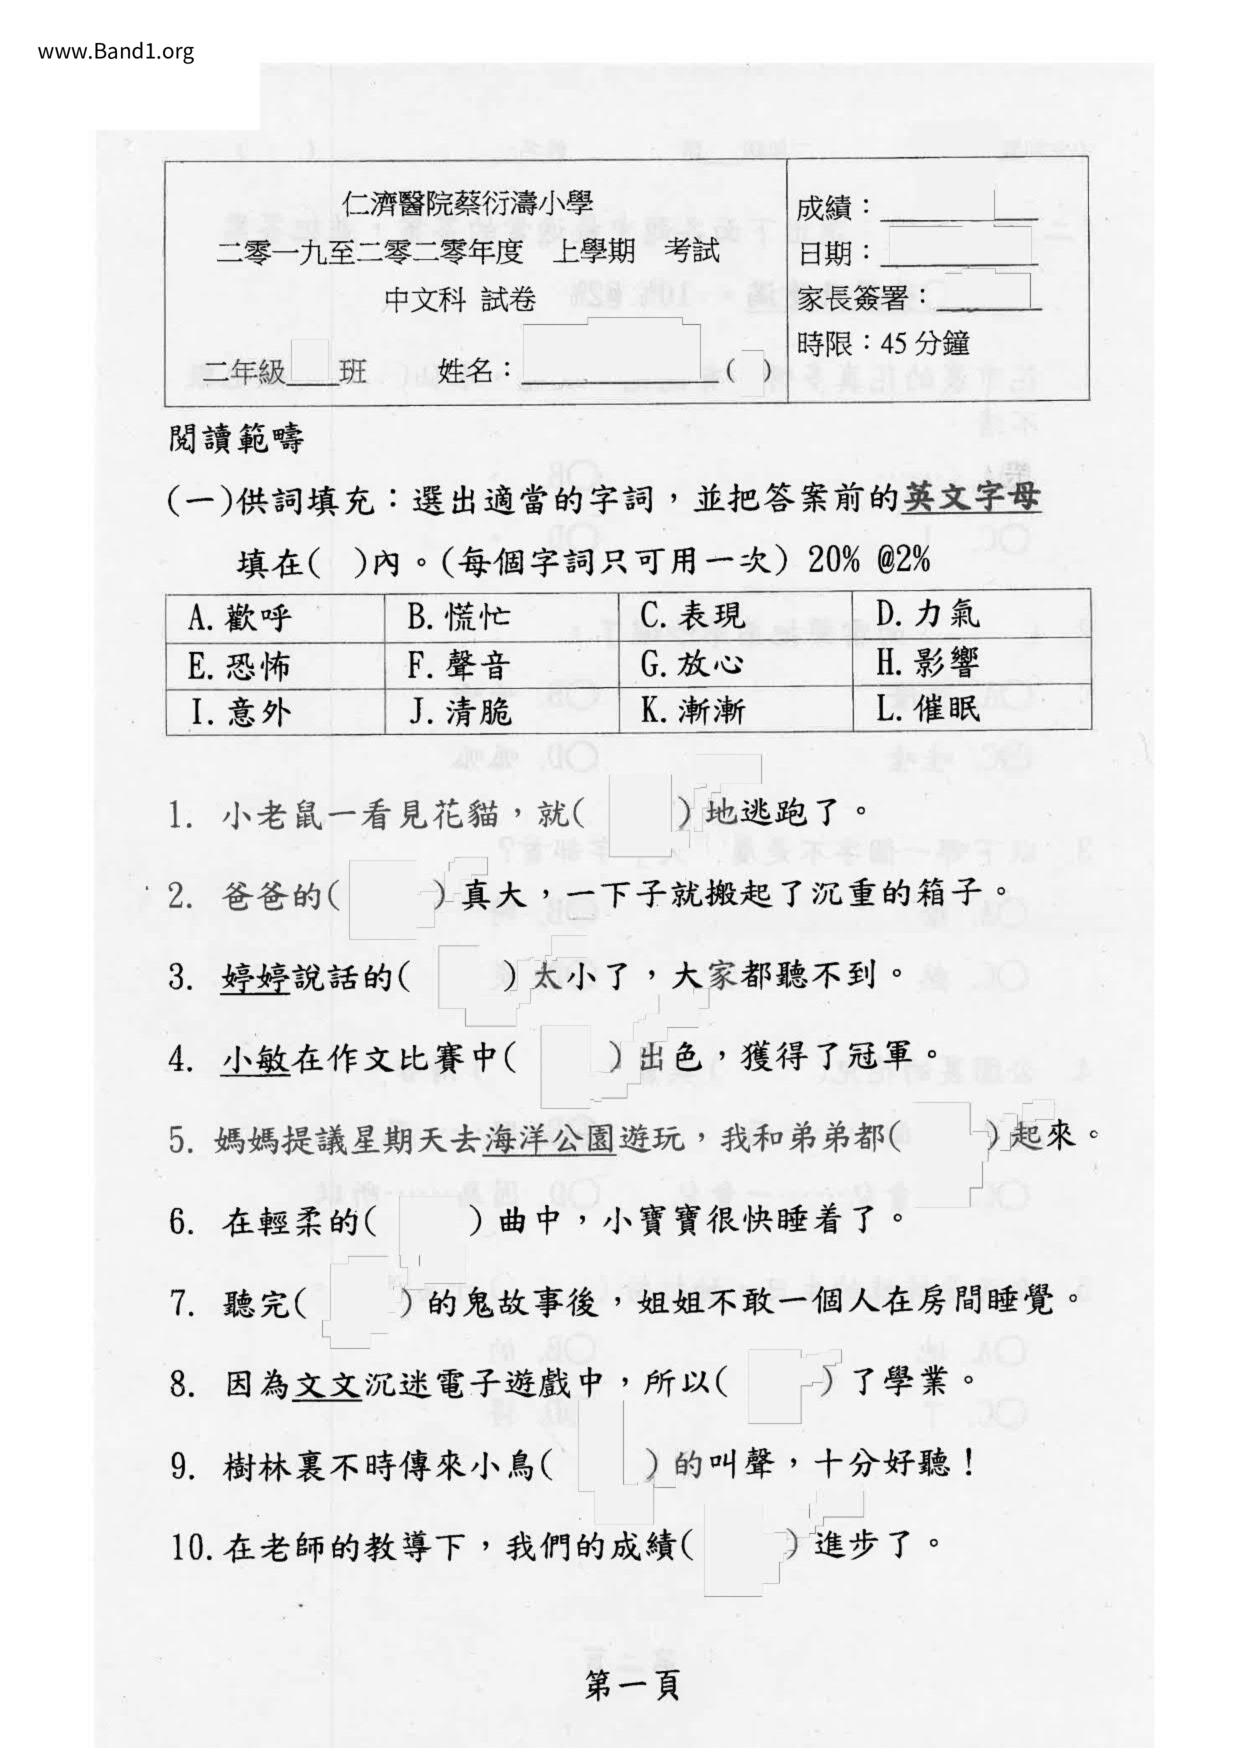 www.Band1.org
仁濟醫院蔡衍濤小學
二零一九至二零二零年度 上學期 考試
中文科 試卷
二年級____班 姓名：__________( )
成績：
日期：
家長簽署：
時限：45分鐘
閱讀範疇
(一)供詞填充：選出適當的字詞，並把答案前的英文字母
填在( )內。(每個字詞只可用一次) 20% @2%
A.歡呼 B.慌忙 C.表現 D.力氣
E.恐怖 F.聲音 G.放心 H.影響
I.意外 J.清脆 K.漸漸 L.催眠
1. 小老鼠一看見花貓，就( )地逃跑了。
2. 爸爸的( )真大，一下子就搬起了沉重的箱子。
3. 婷婷說話的( )太小了，大家都聽不到。
4. 小敏在作文比賽中( )出色，獲得了冠軍。
5. 媽媽提議星期天去海洋公園遊玩，我和弟弟都( )起來。
6. 在輕柔的( )曲中，小寶寶很快睡着了。
7. 聽完( )的鬼故事後，姐姐不敢一個人在房間睡覺。
8. 因為文文沉迷電子遊戲中，所以( )了學業。
9. 樹林裏不時傳來小鳥( )的叫聲，十分好聽！
10.在老師的教導下，我們的成績( )進步了。
第一頁